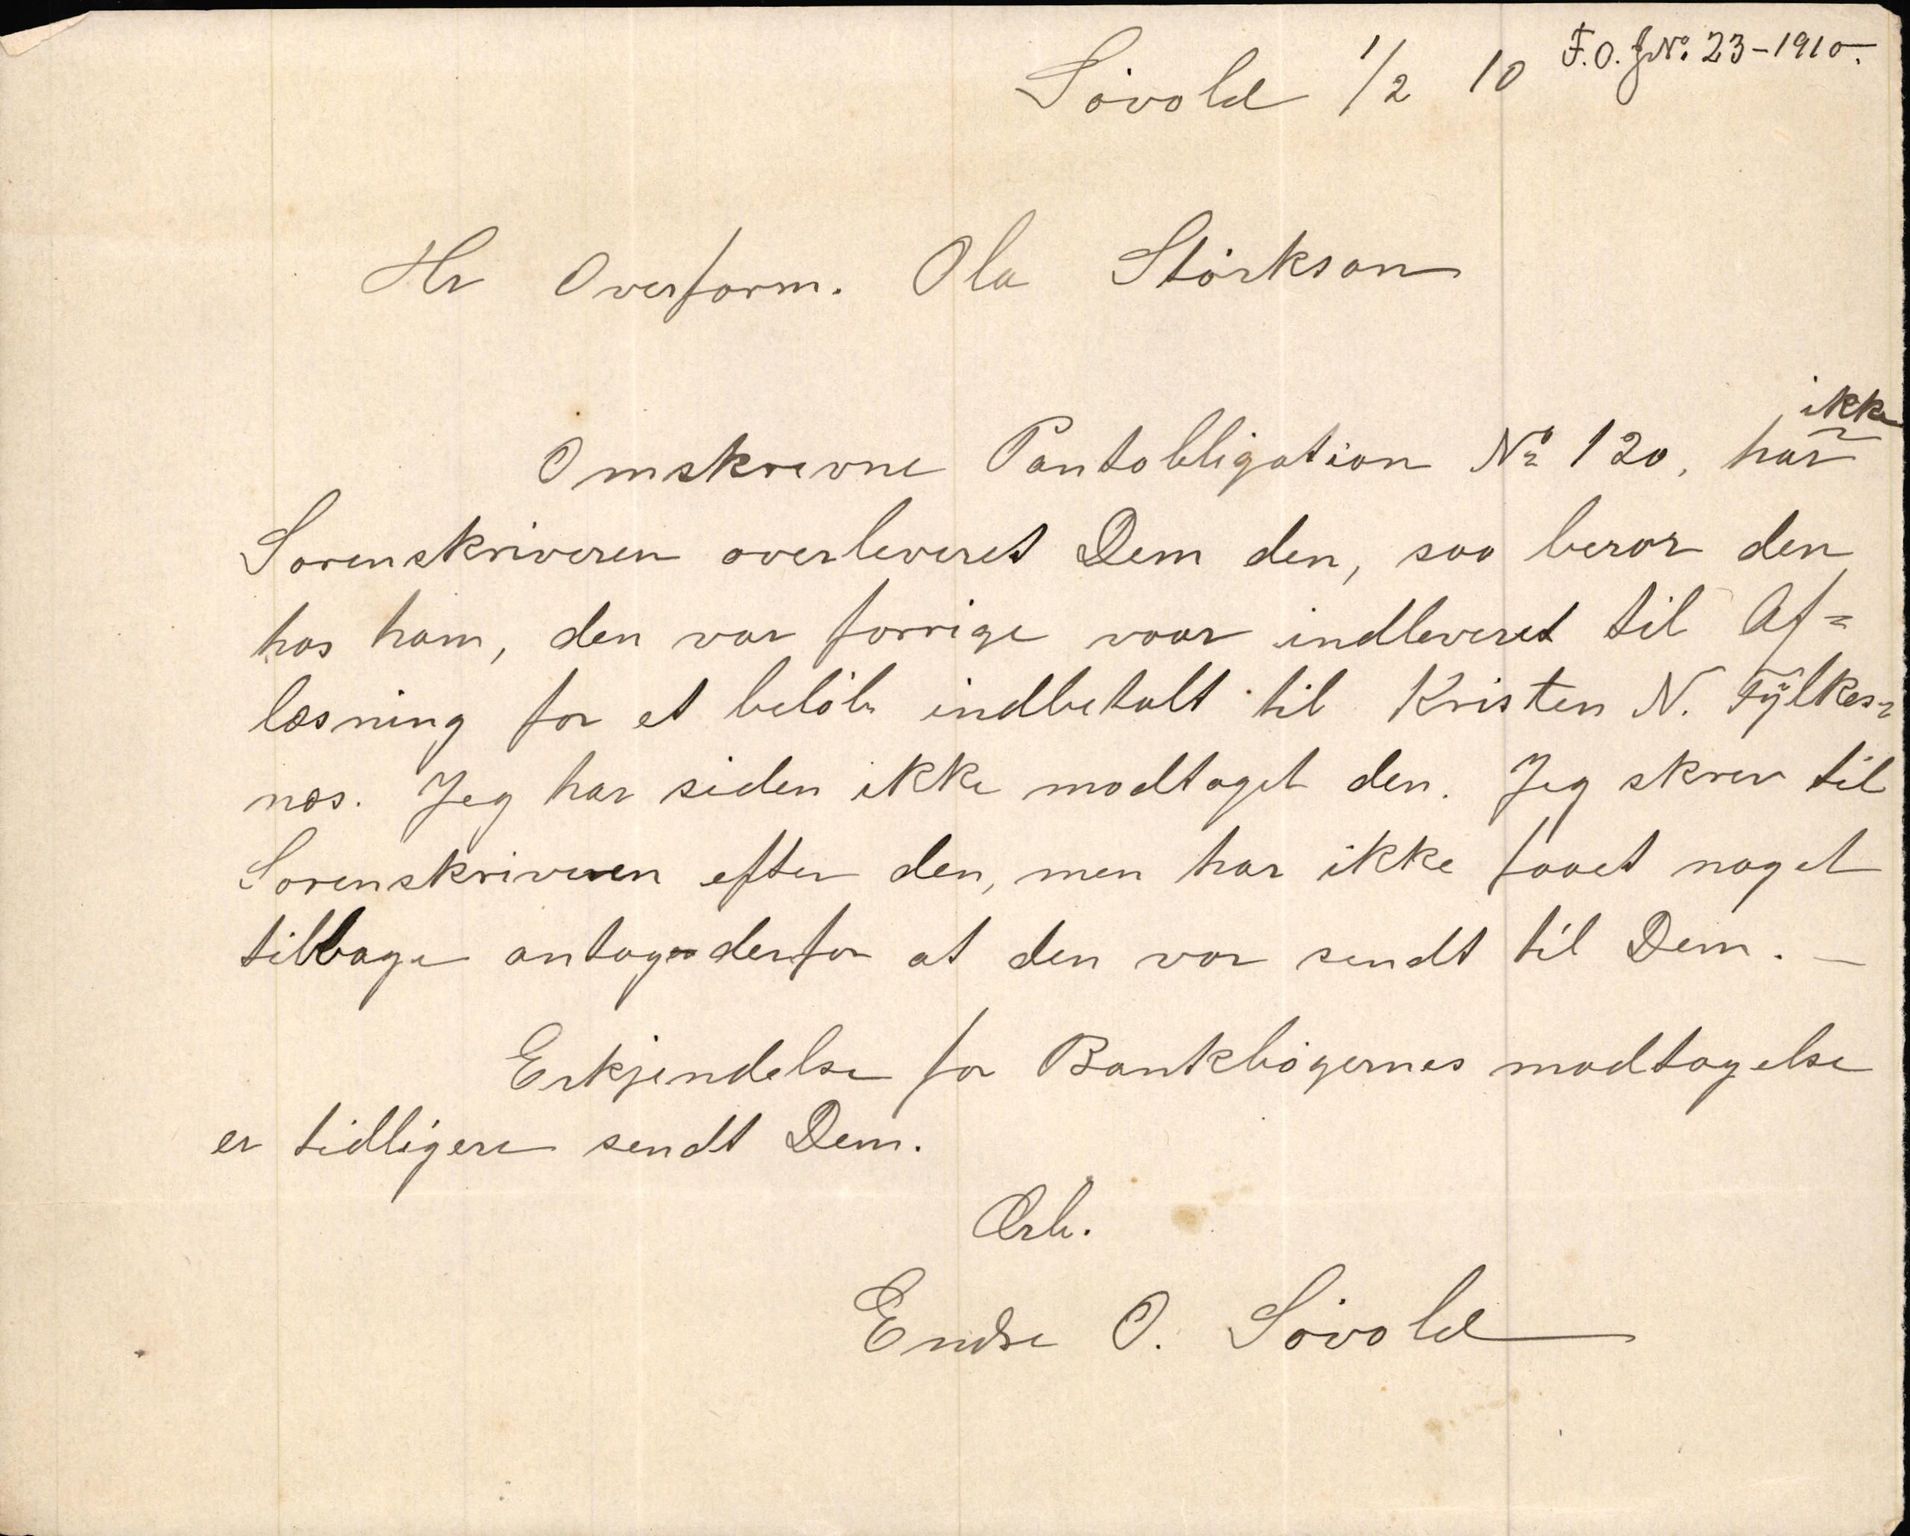 F.O. J№. 23-1910.
Søvold 1/2 10
Hr Overform. Ola Størkson
ikke
Omskrevne Pantobligation № 120, har
Sorenskriveren overleveret Dem den, saa beror den
hos ham, den var forrige vaar indleveret til Af=
læsning for et beløb indbetalt til Kristen N. Fylkes=
næs. Jeg har siden ikke modtaget den. Jeg skrev til
Sorenskriveren efter den, men har ikke faaet noget
tilbage antager derfor at den var sendt til Dem. —
Erkjendelse for Bankbøgernes modtagelse
er tidligere sendt Dem.
Ærb.
Endre O. Søvold